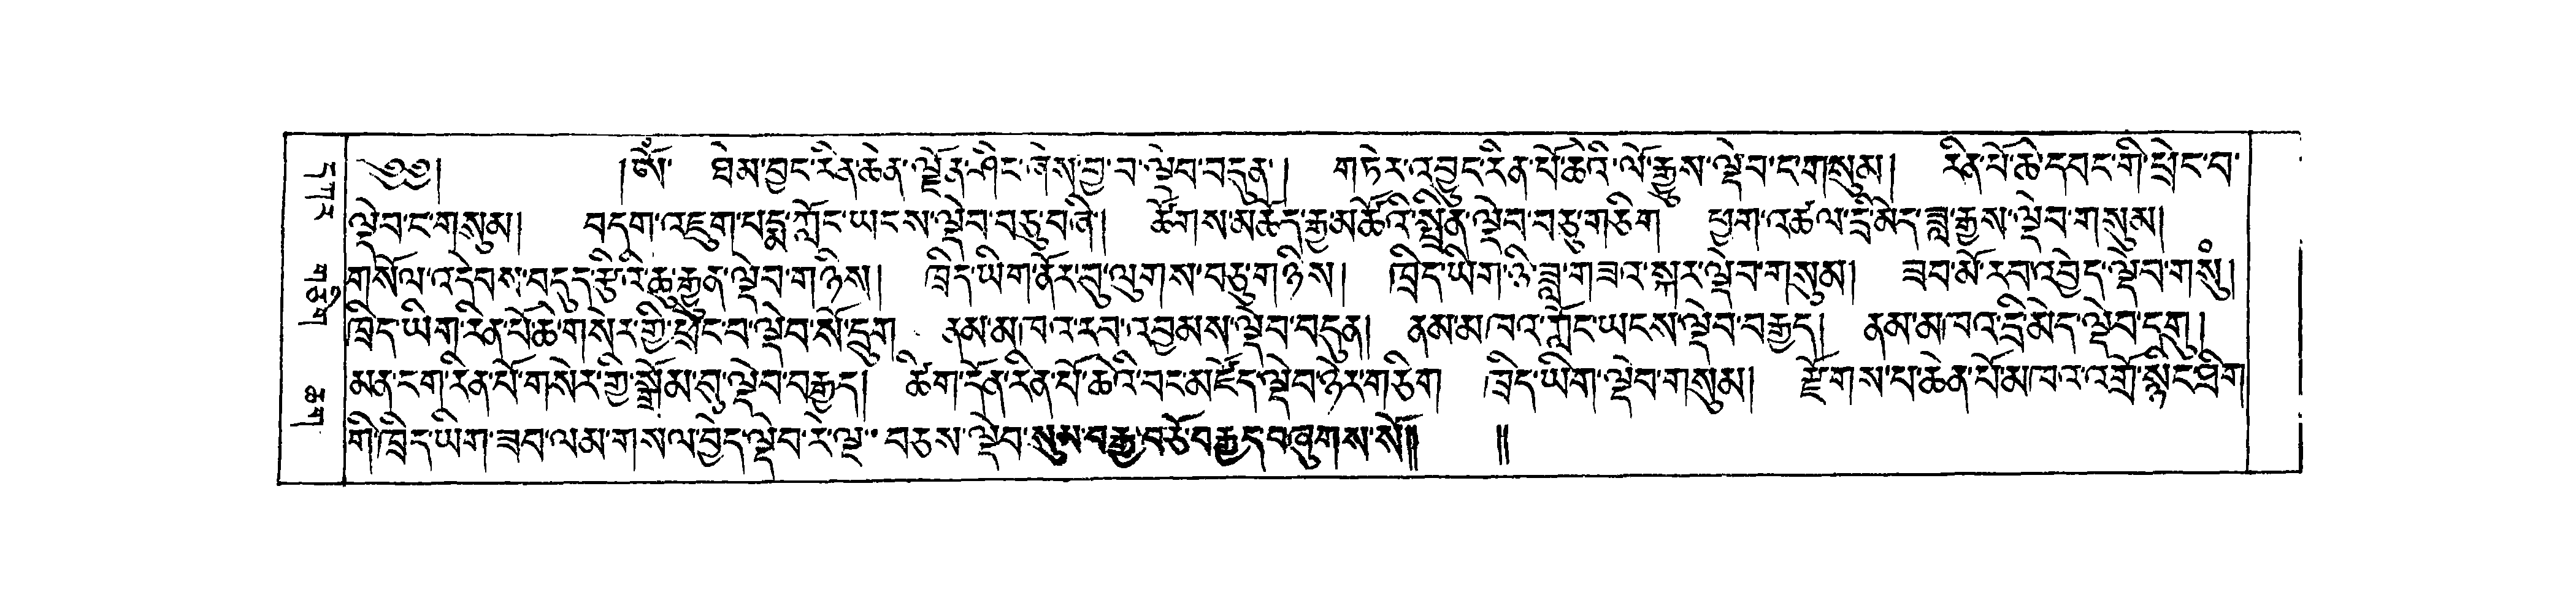 ༄༅། །ཨོཾ་ ཐེམ་བྱང་རིན་ཆེན་ལྗོན་ཤིང་ཞེས་བྱ་བ་ལྡེབ་བདུན། གཏེར་འབྱུང་རིན་པོ་ཆེའི་ལོ་རྒྱུས་ལྡེབ་ང་གསུམ། རིན་པོ་ཆེ་དབང་གི་ཕྲེང་བ་
ལྡེབ་ང་གསུམ། བདག་འཇུག་པདྨ་ཀློང་ཡངས་ལྡེབ་བཅུ་བཞི། ཚོགས་མཆོད་རྒྱ་མཚོའི་སྤྲིན་ལྡེབ་བཅུ་གཅིག ཕྱག་འཚལ་དྲི་མེད་ཟླ་རྒྱས་ལྡེབ་གསུམ།
གསོལ་འདེབས་བདུད་རྩི་རི་ཆུ་རྒྱུན་ལྡེབ་གཉིས། ཁྲིད་ཡིག་ནོར་བུ་ལུགས་བཅུ་གཉིས། ཁྲིད་ཡིག་ཉི་ཟླ་གཟའ་སྐར་ལྡེབ་གསུམ། ཟབ་མོ་རབ་འབྱེད་ལྡེབ་གསུཾ།
ཁྲིད་ཡིག་རིན་པོ་ཆེ་གསེར་གྱི་ཕྲེང་བ་ལྡེབ་སོ་དྲུག ནམ་མཁའ་རབ་འབྱམས་ལྡེབ་བདུན། ནམ་མཁའ་ཀློང་ཡངས་ལྡེབ་བརྒྱད། ནམ་མཁའ་དྲི་མེད་ལྡེབ་དགུ།
མན་ངག་རིན་པོ་གསེར་གྱི་སྒྲོམ་བུ་ལྡེབ་བརྒྱད། ཚིག་དོན་རིན་པོ་ཆེའི་བང་མཛོད་ལྡེབ་ཉེར་གཅིག ཁྲིད་ཡིག་ལྡེབ་གསུམ། རྫོགས་པ་ཆེན་པོ་མཁའ་འགྲོ་སྙིང་ཐིག
གི་ཁྲིད་ཡིག་ཟབ་ལམ་གསལ་བྱེད་ལྡེབ་རེ་ལྔ་ བཅས་ལྡེབ་སུམ་བརྒྱ་བཅོ་བརྒྱད་བཞུགས་སོ།། །།
དཀར
གཅིག
ཆག